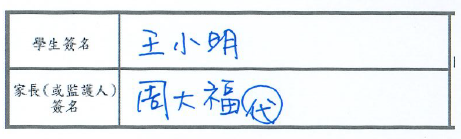 學生簽名 王小明
家長(或監護人)
簽名 周大福代